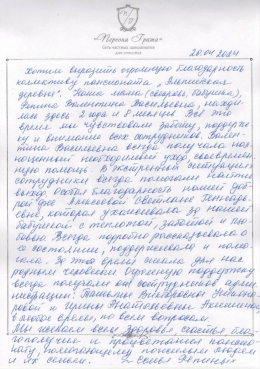 «Первая Грань»
Сеть частных пансионатов
для стариков
20.04.2024
Хотим выразить огромную благодарность
коллективу пансионата „
деревня". Наша мама (свекровь, бабушка),
Валентина Васильевна, находи-
лась здесь 2 года и 8 месяцев. Всё это
время мы чувствовали заботу, поддерж-
ку и внимание всех сотрудников. Вален-
тина Васильевна всегда получала пол-
ноценный необходимый уход, своевремен-
ную помощь. В экстренных ситуациях
сотрудники всегда помогали найти
выход. Особая благодарность нашей доб-
рой фее Алексеевой Светлане Геннадь-
евне, которая ухаживала за нашей
бабушкой с теплотой, заботой и лю-
бовью. Всегда подробно рассказывала о
её состоянии, поддерживала и помо-
гала. За это время стала для нас
родным человеком. Огромную поддержку
всегда получали от сотрудников адми-
нистрации: Татьяны Викторовны
и Ирины Анатольевны
в любое время, по всем вопросам.
Мы желаем всем здоровья, счастья, бла-
гополучия и процветания пансио-
нату, помогающему пожилым людям
и их семьям. Семья